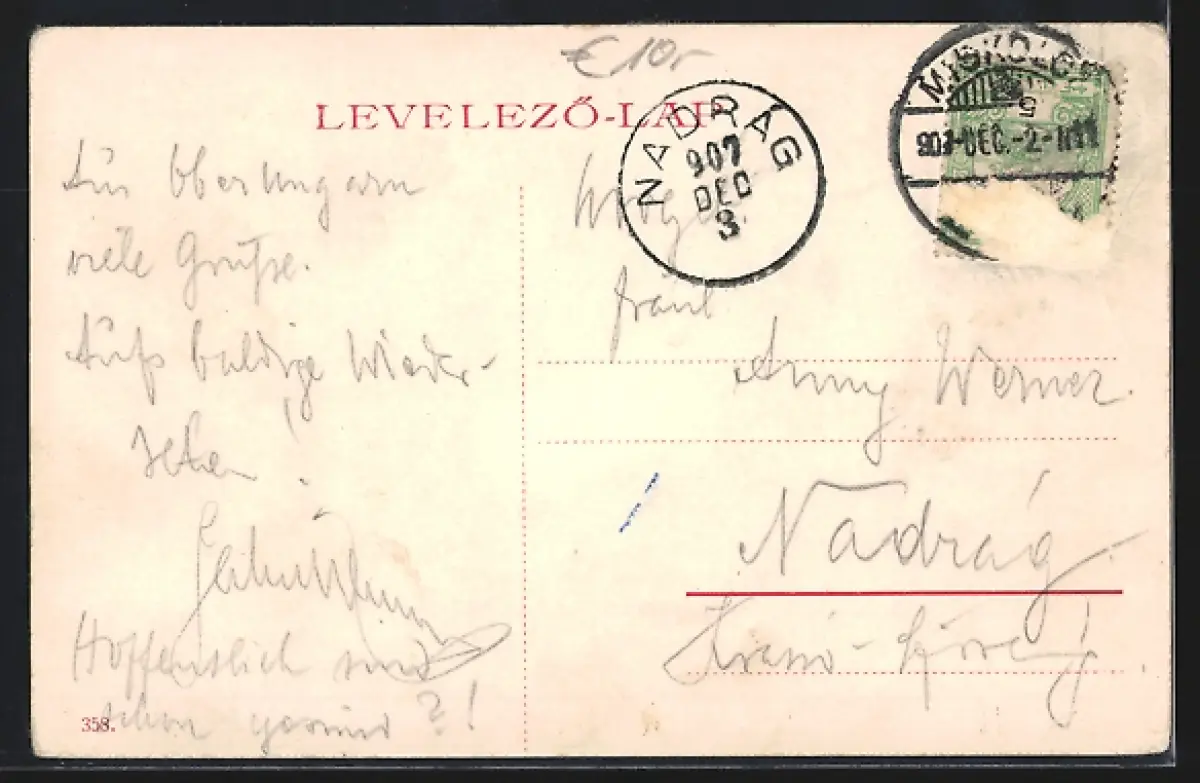 € 10,-
LEVELEZŐ-LAP
MISKOLCZ
907-DEC.-2-N11
NADRÁG
907
DEC
3
Aus Oberungarn
viele Grüße.
Aufs baldige Wieder-
sehen!
Hoffentlich sind
schon gesund?!
Fräul
Anny Werner.
Nadrág
Krassó-Szörény
358.